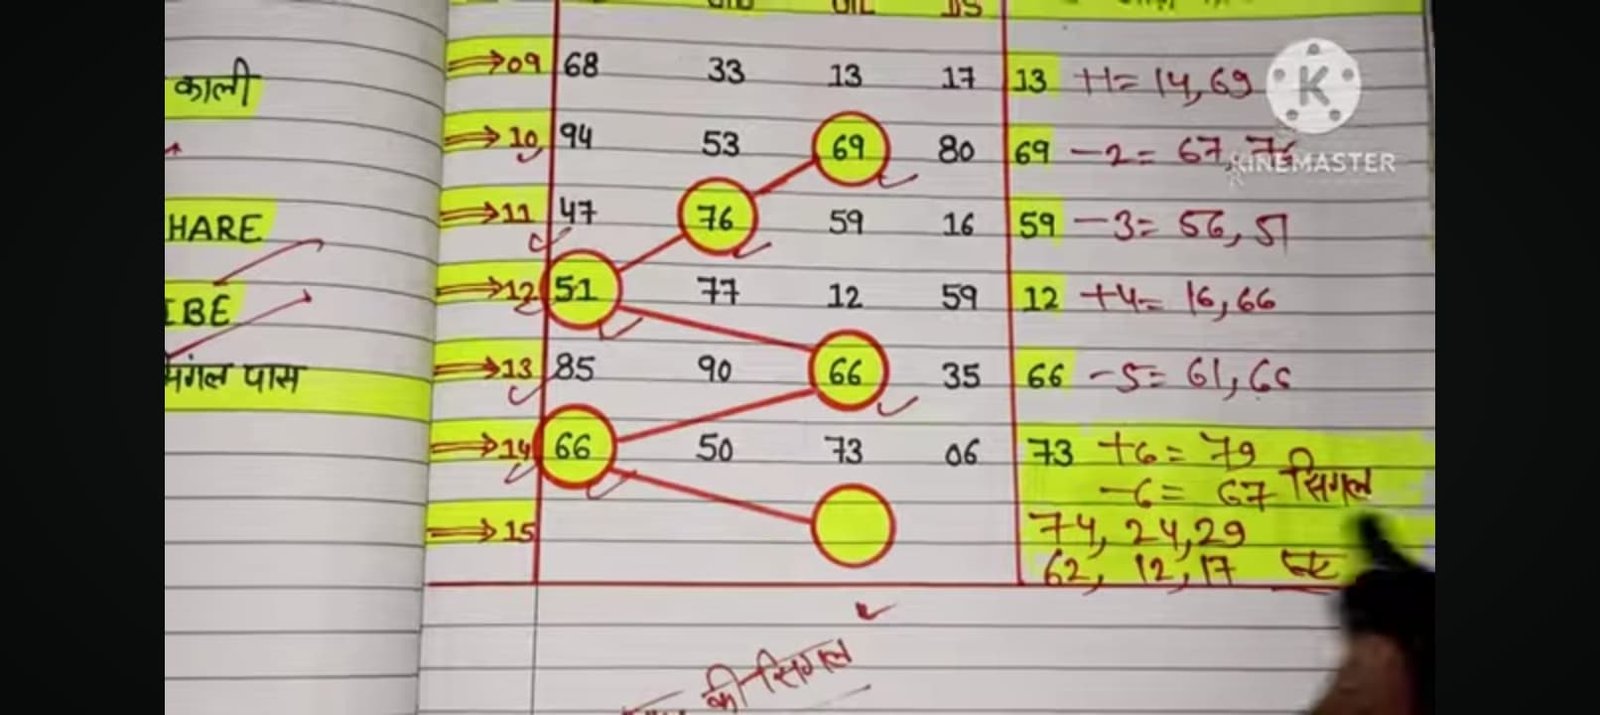 काली
HARE
IBE
मंगल पास
09 68 33 13 17 13 +1= 14, 69
10 94 53 69 80 69 -2= 67, 76
11 47 76 59 16 59 -3= 56, 51
12 51 77 12 59 12 +4= 16, 66
13 85 90 66 35 66 -5= 61, 66
14 66 50 73 06 73 +6= 79
-6= 67 सिगल
15 74, 24, 29
62, 12, 17
की सिगल
K
KINEMASTER